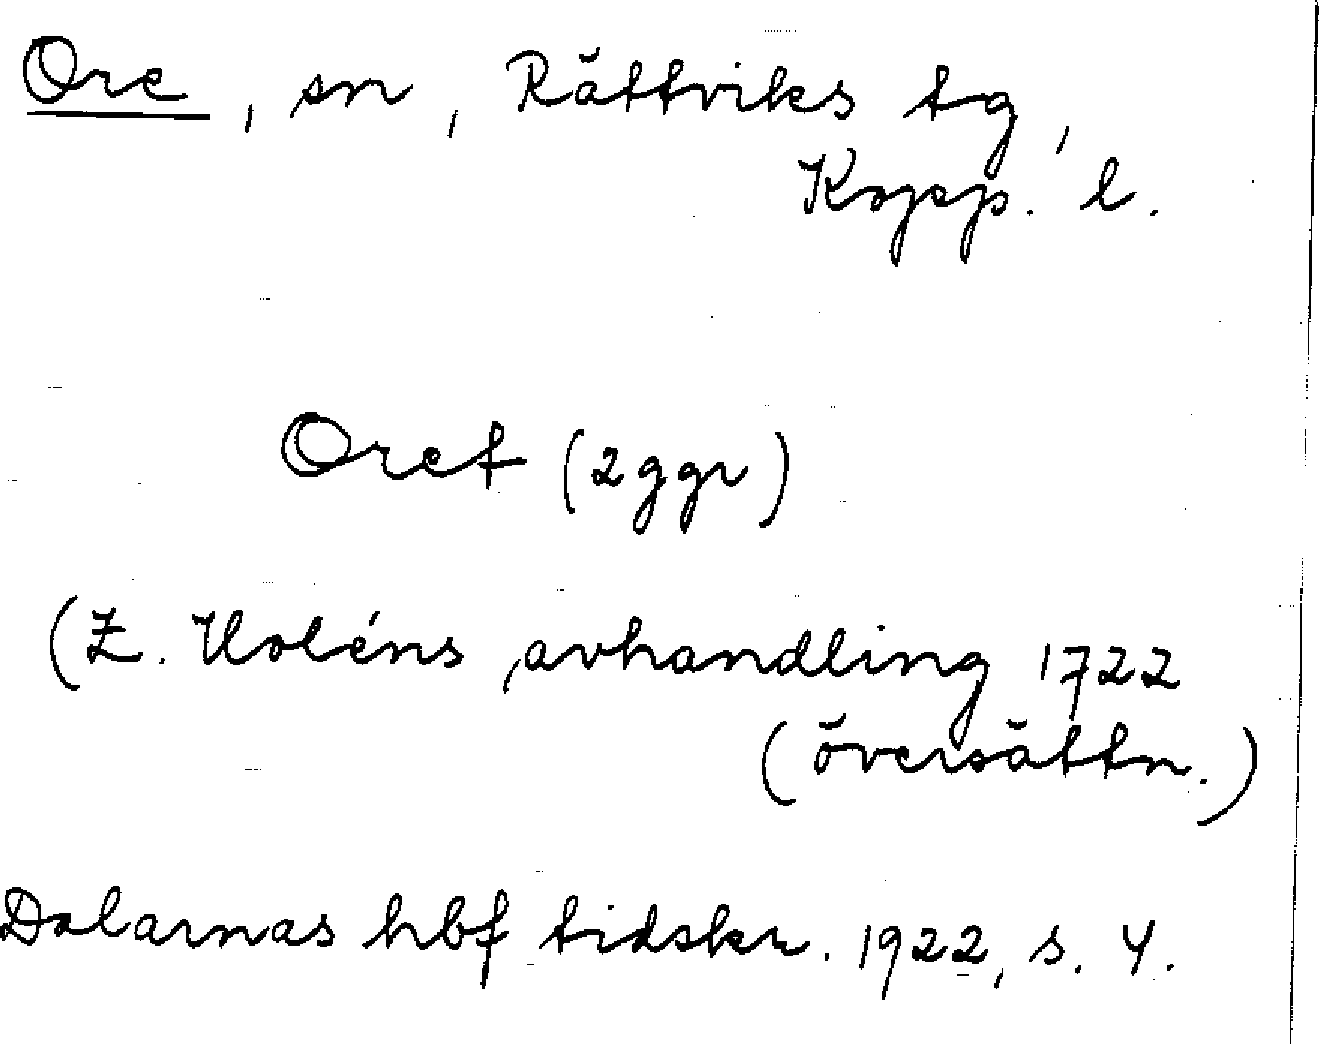 Ore, sn, Rättviks tg,
Kopp. l.
Oret (2 ggr)
(Z. Holéns avhandling 1722
(översättn.)
Dalarnas hbf tidskr. 1922, s. 4.